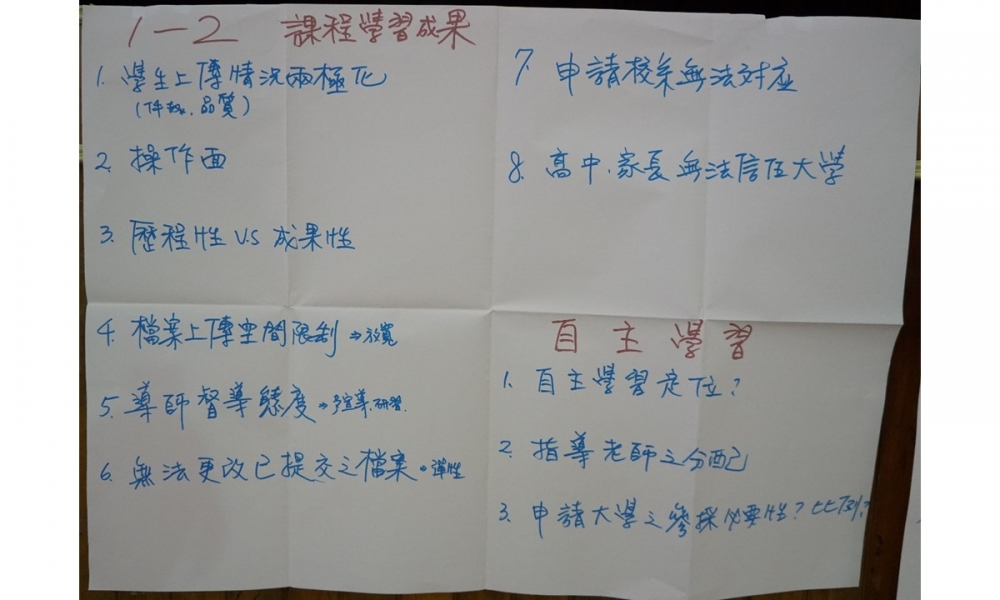 1-2 課程學習成果
1. 學生上傳情況兩極化
(件數、品質)
2. 操作面
3. 歷程性 V.S 成果性
4. 檔案上傳空間限制 ⇒放寬
5. 導師督導態度 ⇒多宣導.研習.
6. 無法更改已提交之檔案 ⇒彈性
7. 申請校系無法對應
8. 高中.家長無法信任大學
自主學習
1. 自主學習定位?
2. 指導老師之分配
3. 申請大學之參採必要性? 比例?